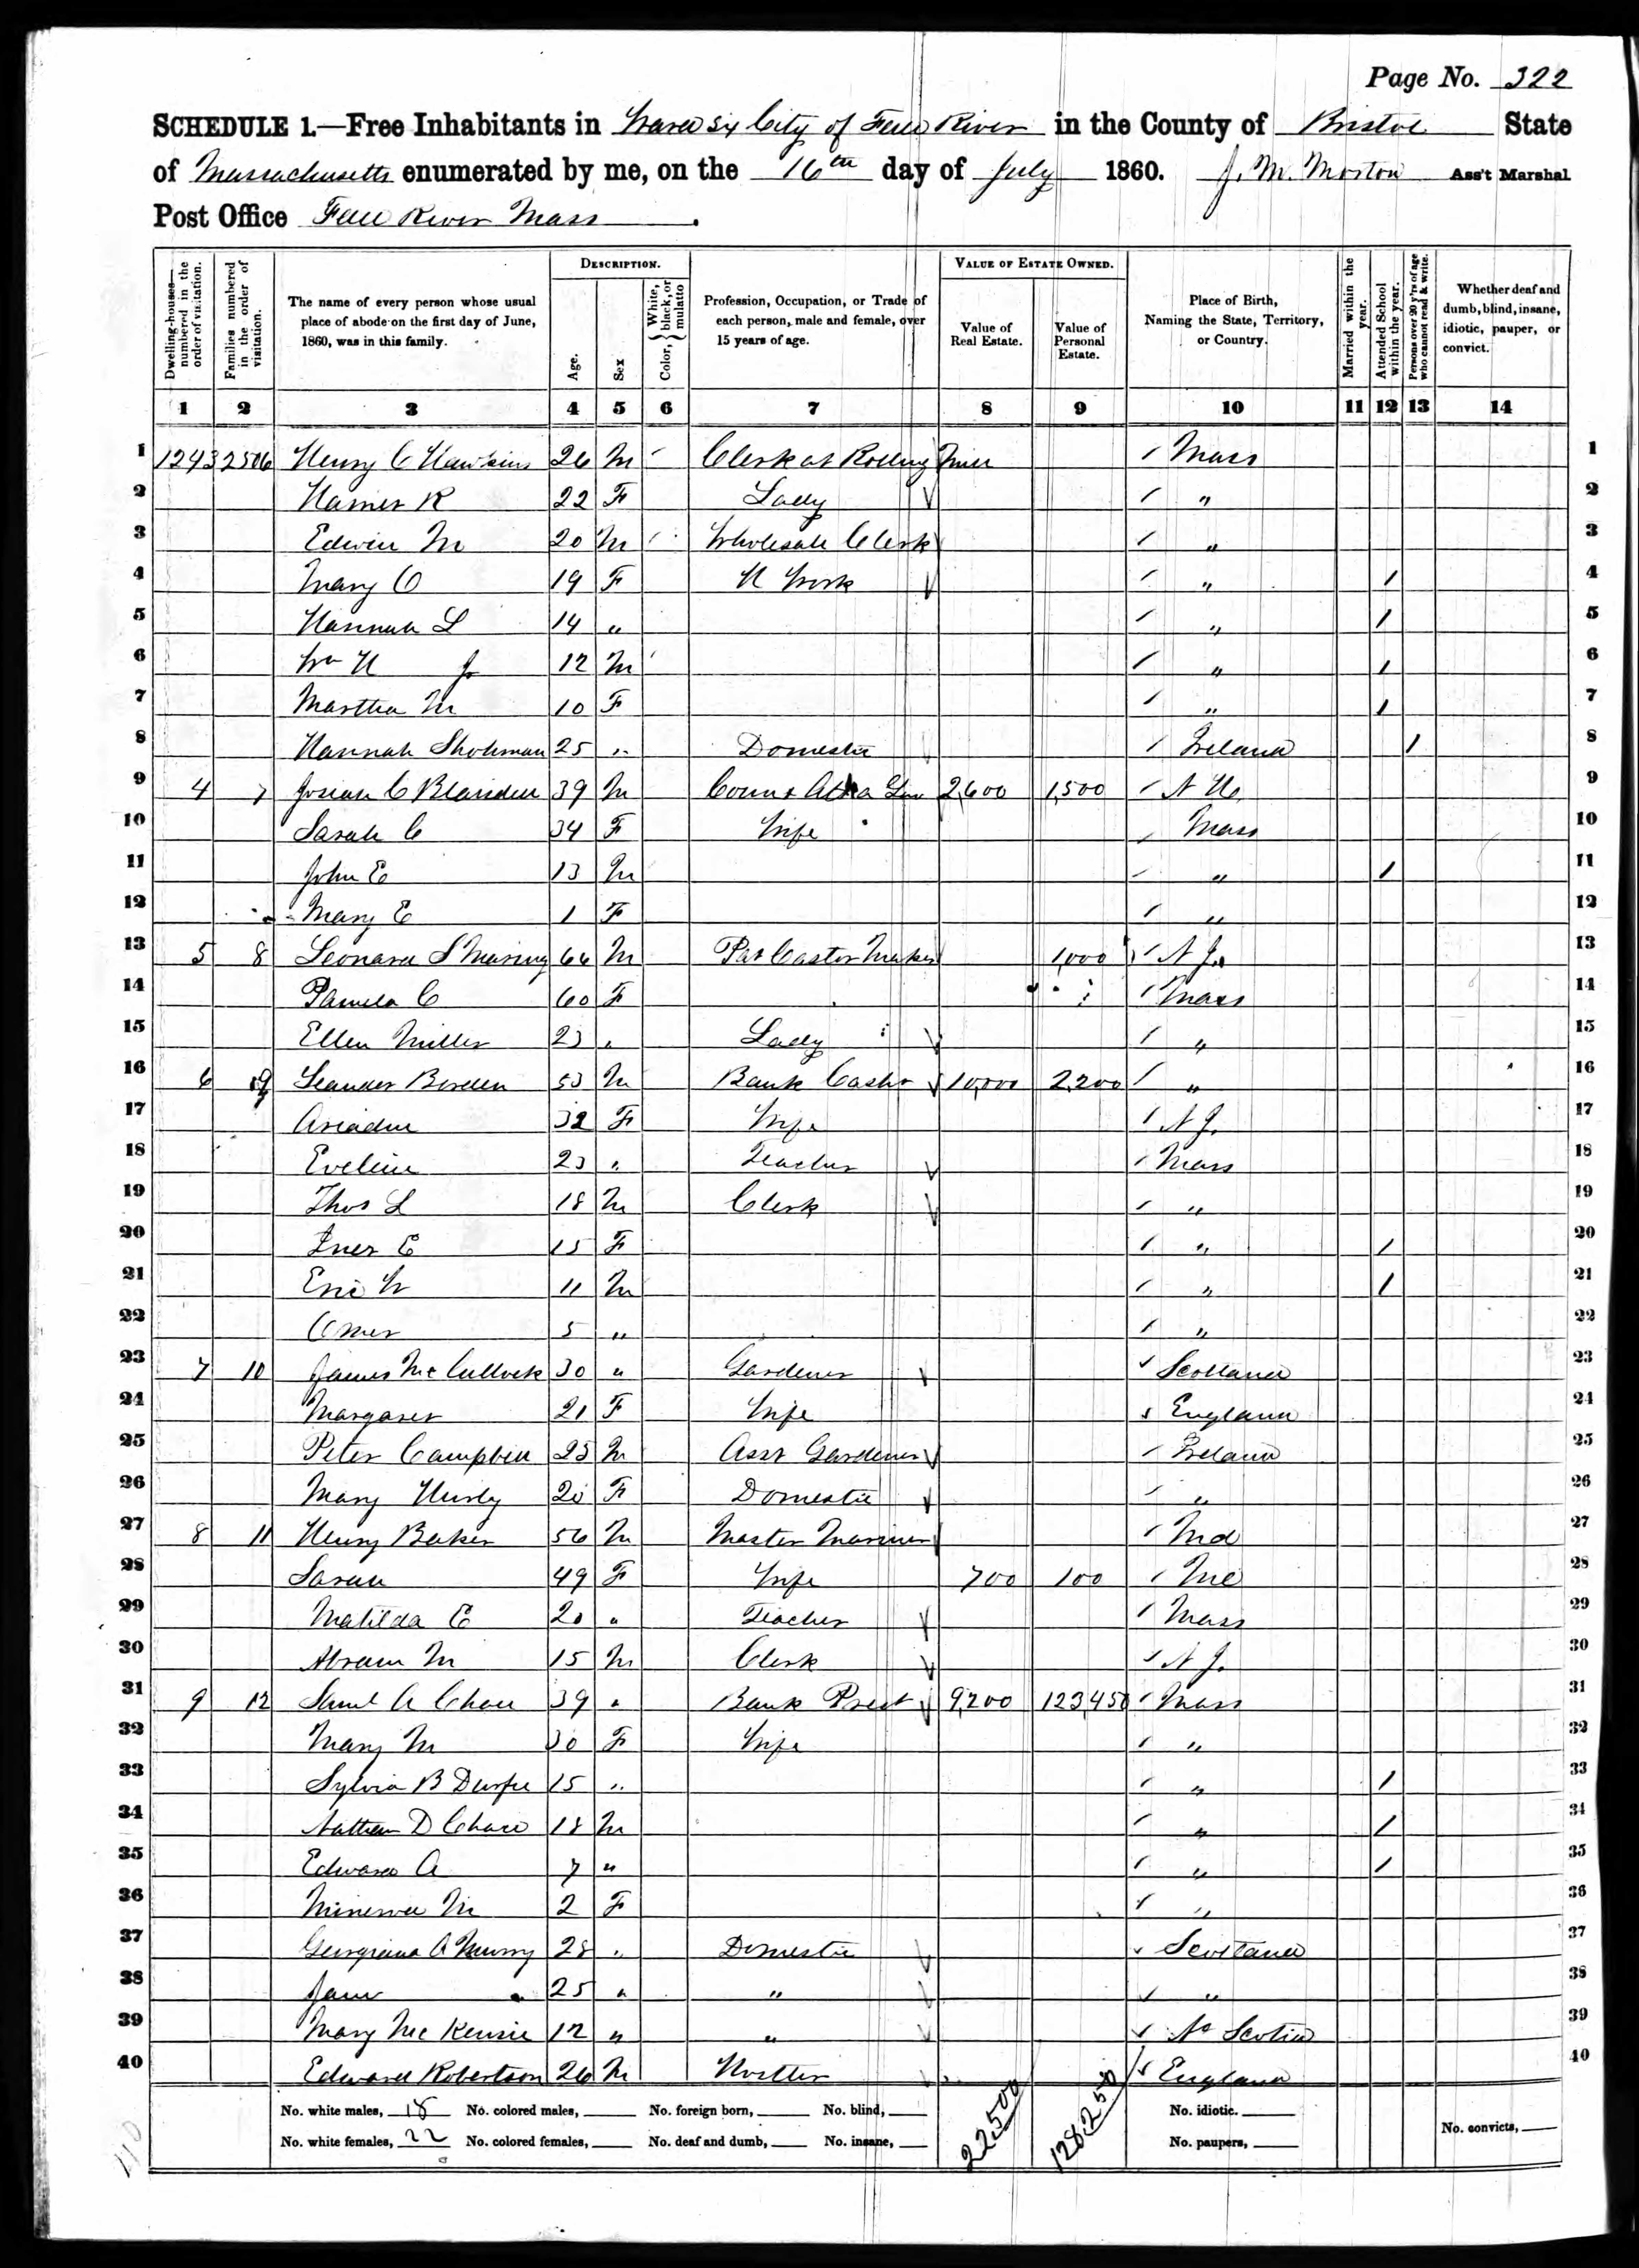 Page No. 322
SCHEDULE 1.—Free Inhabitants in Ward Six City of Fall River in the County of Bristol State
of Massachusetts enumerated by me, on the 16th day of July 1860. J. M. Morton Ass't Marshal
Post Office Fall River Mass.
Dwelling-houses—numbered in the order of visitation.
Families numbered in the order of visitation.
The name of every person whose usual place of abode on the first day of June, 1860, was in this family.
DESCRIPTION.
Age.
Sex
Color, { White, black, or mulatto
Profession, Occupation, or Trade of each person, male and female, over 15 years of age.
VALUE OF ESTATE OWNED.
Value of Real Estate.
Value of Personal Estate.
Place of Birth, Naming the State, Territory, or Country.
Married within the year.
Attended School within the year.
Persons over 20 y'rs of age who cannot read & write.
Whether deaf and dumb, blind, insane, idiotic, pauper, or convict.
1 2 3 4 5 6 7 8 9 10 11 12 13 14
1 1243 2506 Henry C Hawkins 26 M Clerk at Rolling Mill / Mass 1
2 Harriet R 22 F Lady / " 2
3 Edwin M 20 M Wholesale Clerk / " 3
4 Mary O 19 F H Work / " / 4
5 Hannah L 14 " / " / 5
6 Wm H Jr 12 M / " / 6
7 Martha M 10 F / " / 7
8 Hannah 25 " Domestic / Ireland / 8
9 4 7 Josiah C Blaisdell 39 M 2,600 1,500 / N H. 9
10 Sarah C 34 F Wife / Mass 10
11 John E 13 M / " / 11
12 Mary E 1 F / " 12
13 5 8 Leonard 66 M Pat Caster Maker 1,000 / N J. 13
14 Pamela C 60 F / Mass 14
15 Ellen Miller 23 " Lady / " 15
16 6 9 Leander Borden 53 M Bank Cashr 10,000 2,200 / " 16
17 Ariadne 32 F Wife / N J. 17
18 Eveline 23 " Teacher / Mass 18
19 Thos L 18 M Clerk / " 19
20 Inez E 15 F / " / 20
21 Eric W 11 M / " / 21
22 Omer 5 " / " 22
23 7 10 James McCullock 30 " Gardener / Scotland 23
24 Margaret 21 F Wife / England 24
25 Peter Campbell 25 M Asst Gardener / Ireland 25
26 Mary Hurly 20 F Domestic / " 26
27 8 11 Henry Baker 56 M Master Mariner / Md 27
28 Sarah 49 F Wife 700 100 / Me 28
29 Matilda E 20 " Teacher / Mass 29
30 Abram M 15 M Clerk / N J. 30
31 9 12 Saml A Chace 39 " Bank Prest 9,200 123,450 / Mass 31
32 Mary M 30 F Wife / " 32
33 Sylvia B Durfee 15 " / " / 33
34 Nathan D Chace 18 M / " / 34
35 Edward A 7 " / " / 35
36 Minerva M 2 F / " 36
37 Georgiana A Murry 28 " Domestic / Scotland 37
38 Jane " 25 " " / " 38
39 Mary McKensie 12 " " / No Scotia 39
40 Edward Robertson 26 M Hostler / England 40
No. white males, 18 No. colored males, No. foreign born, No. blind, 22,500 128,250 No. idiotic.
No. white females, 22 No. colored females, No. deaf and dumb, No. insane, No. paupers, No. convicts,